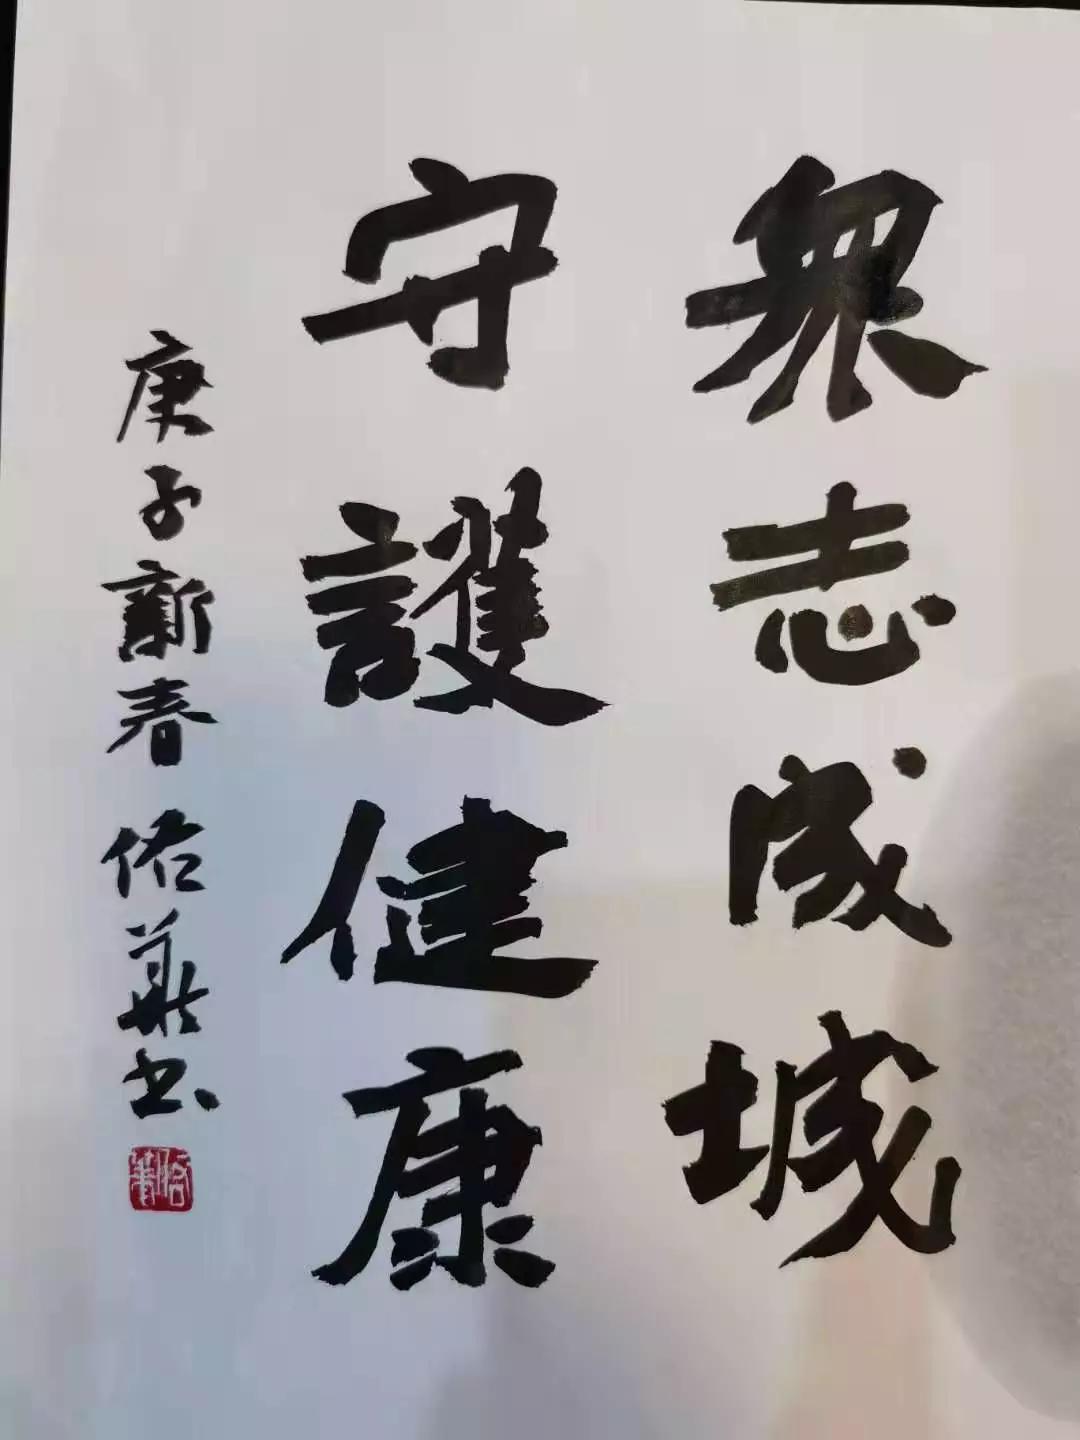 眾志成城
守護健康
庚子新春佑華书
佑華